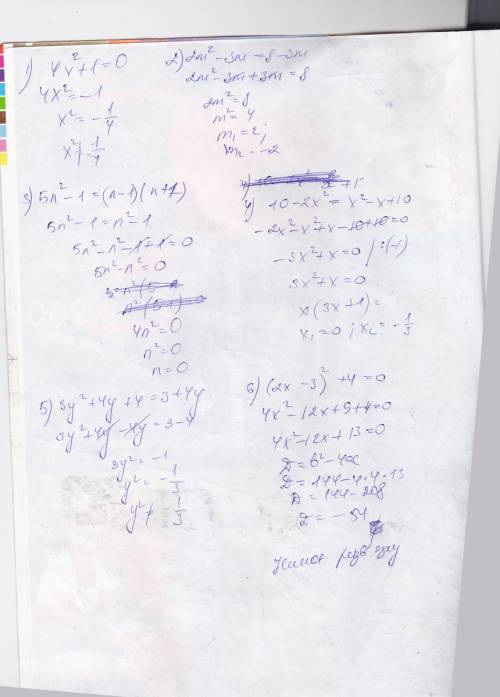 1) 4x²+1=0
4x²=-1
x²=-1/4
x²≠-1/4
2) 2m²-3m=8-3m
2m²-3m+3m=8
2m²=8
m²=4
m₁=2;
m₂=-2
3) 5n²-1=(n-1)(n+1)
5n²-1=n²-1
5n²-n²-1+1=0
5n²-n²=0
4n²=0
n²=0
n=0
4) 10-2x²=x²-x+10
-2x²-x²+x-10+10=0
-3x²+x=0 /:(-1)
3x²+x=0
x(3x+1)=
x₁=0; x₂=-1/3
5) 3y²+4y+4=3+4y
3y²+4y-4y=3-4
3y²=-1
y²=-1/3
y²≠ 1/3
6) (2x-3)²+4=0
4x²-12x+9+4=0
4x²-12x+13=0
D=b²-4ac
D=144-4·4·13
D=144-208
D=-54